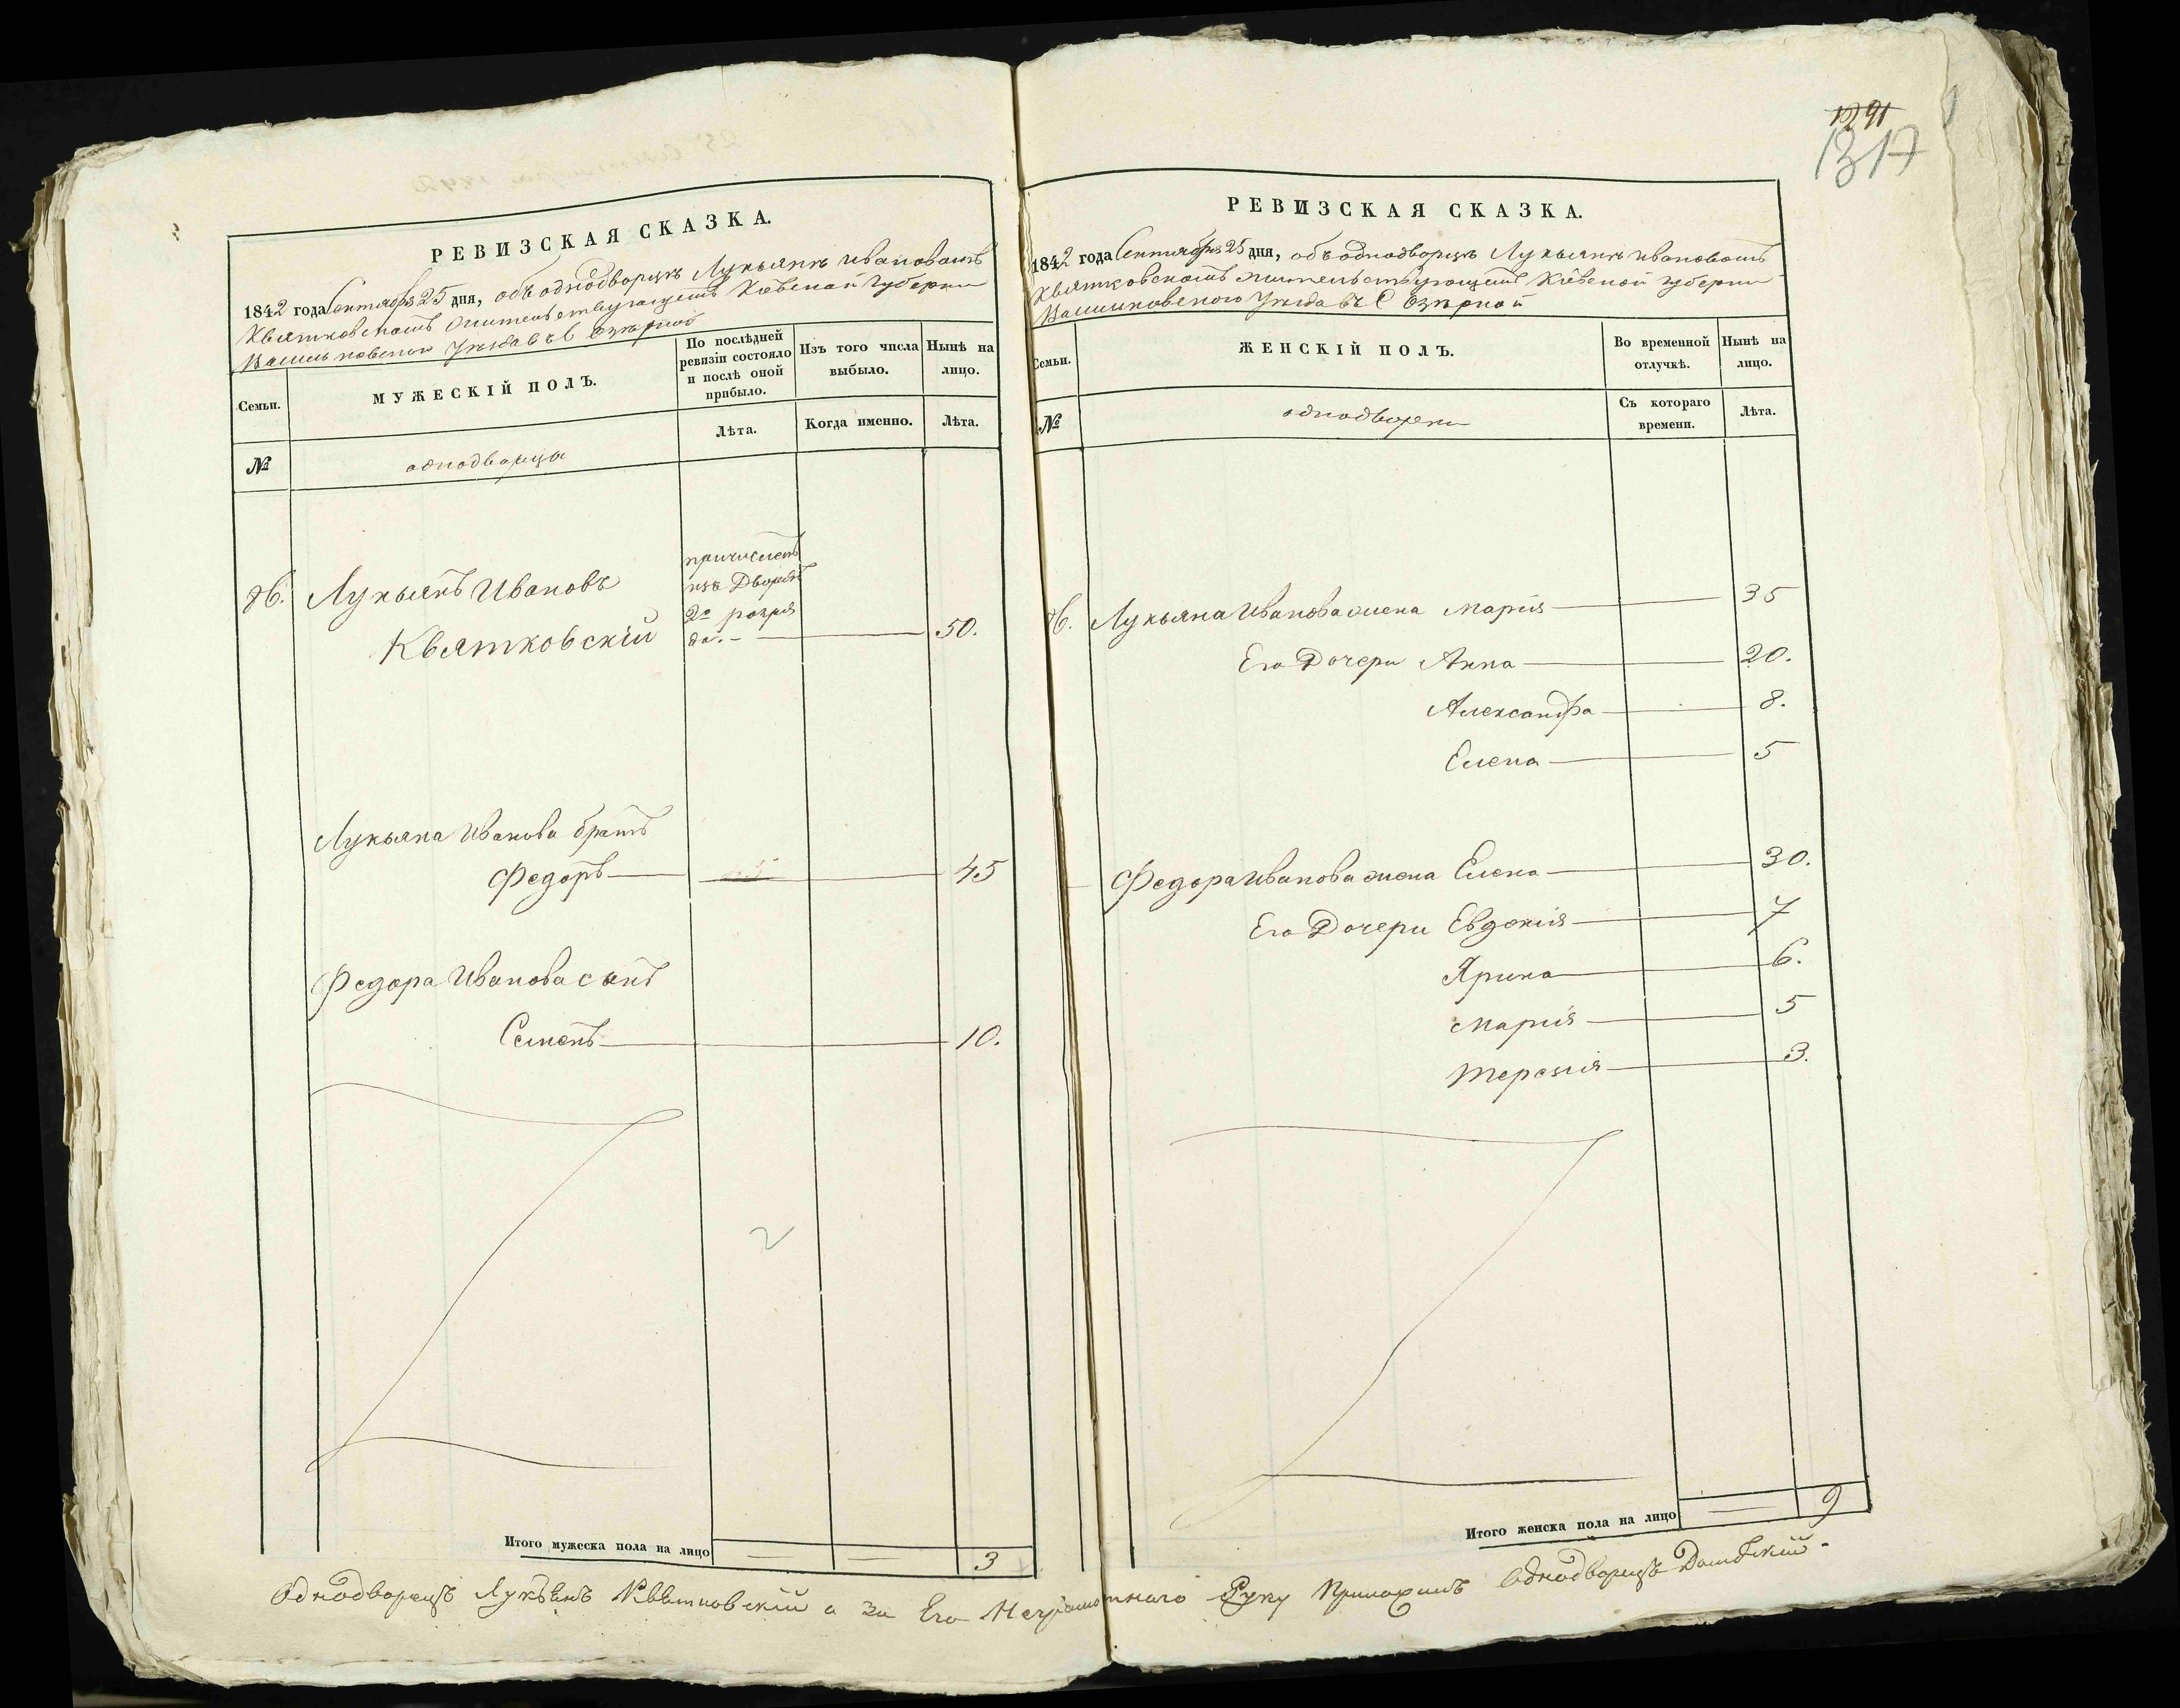 РЕВИЗСКАЯ СКАЗКА.
1842 года Сентября 25 дня, объ однодворцѣ Лукьянѣ Ивановомъ
Квятковскомъ жительствующемъ Кіевской Губерніи
Васильковскаго Уѣзда въ с Озѣрной
Семьи.
МУЖЕСКІЙ ПОЛЪ.
По послѣдней ревизіи состояло и послѣ оной прибыло.
Изъ того числа выбыло.
Нынѣ на лицо.
№
однодворцы
Лѣта.
Когда именно.
Лѣта.
причисленъ
изъ Дворянъ
2го разря
да. —
Лукьянъ Ивановъ
Квятковскій 50.
Лукьяна Иванова братъ
Федоръ 45
Федора Иванова сынъ
Семенъ 10.
2
Итого мужеска пола на лицо 3
1291
1317
РЕВИЗСКАЯ СКАЗКА.
1842 года Сентября 25 дня, объ однодворцѣ Лукьянѣ Ивановомъ
Квятковскомъ жительствующемъ Кіевской губерніи
Васильковского Уѣзда въ С Озѣрной
Семьи.
ЖЕНСКІЙ ПОЛЪ.
Во временной отлучкѣ.
Нынѣ на лицо.
№
однодворки
Съ котораго времени.
Лѣта.
Лукьяна Иванова жена Марія 35
Его Дочери Анна 20.
Александра 8.
Елена 5
Федора Иванова жена Елена 30.
Его Дочери Евдокія 7
Ярина 6.
Марія 5
Терезія 3.
Итого женска пола на лицо 9
Однодворецъ Лукьянъ Квятковскій а за Его Неграмотнаго Руку Приложилъ Однодворецъ